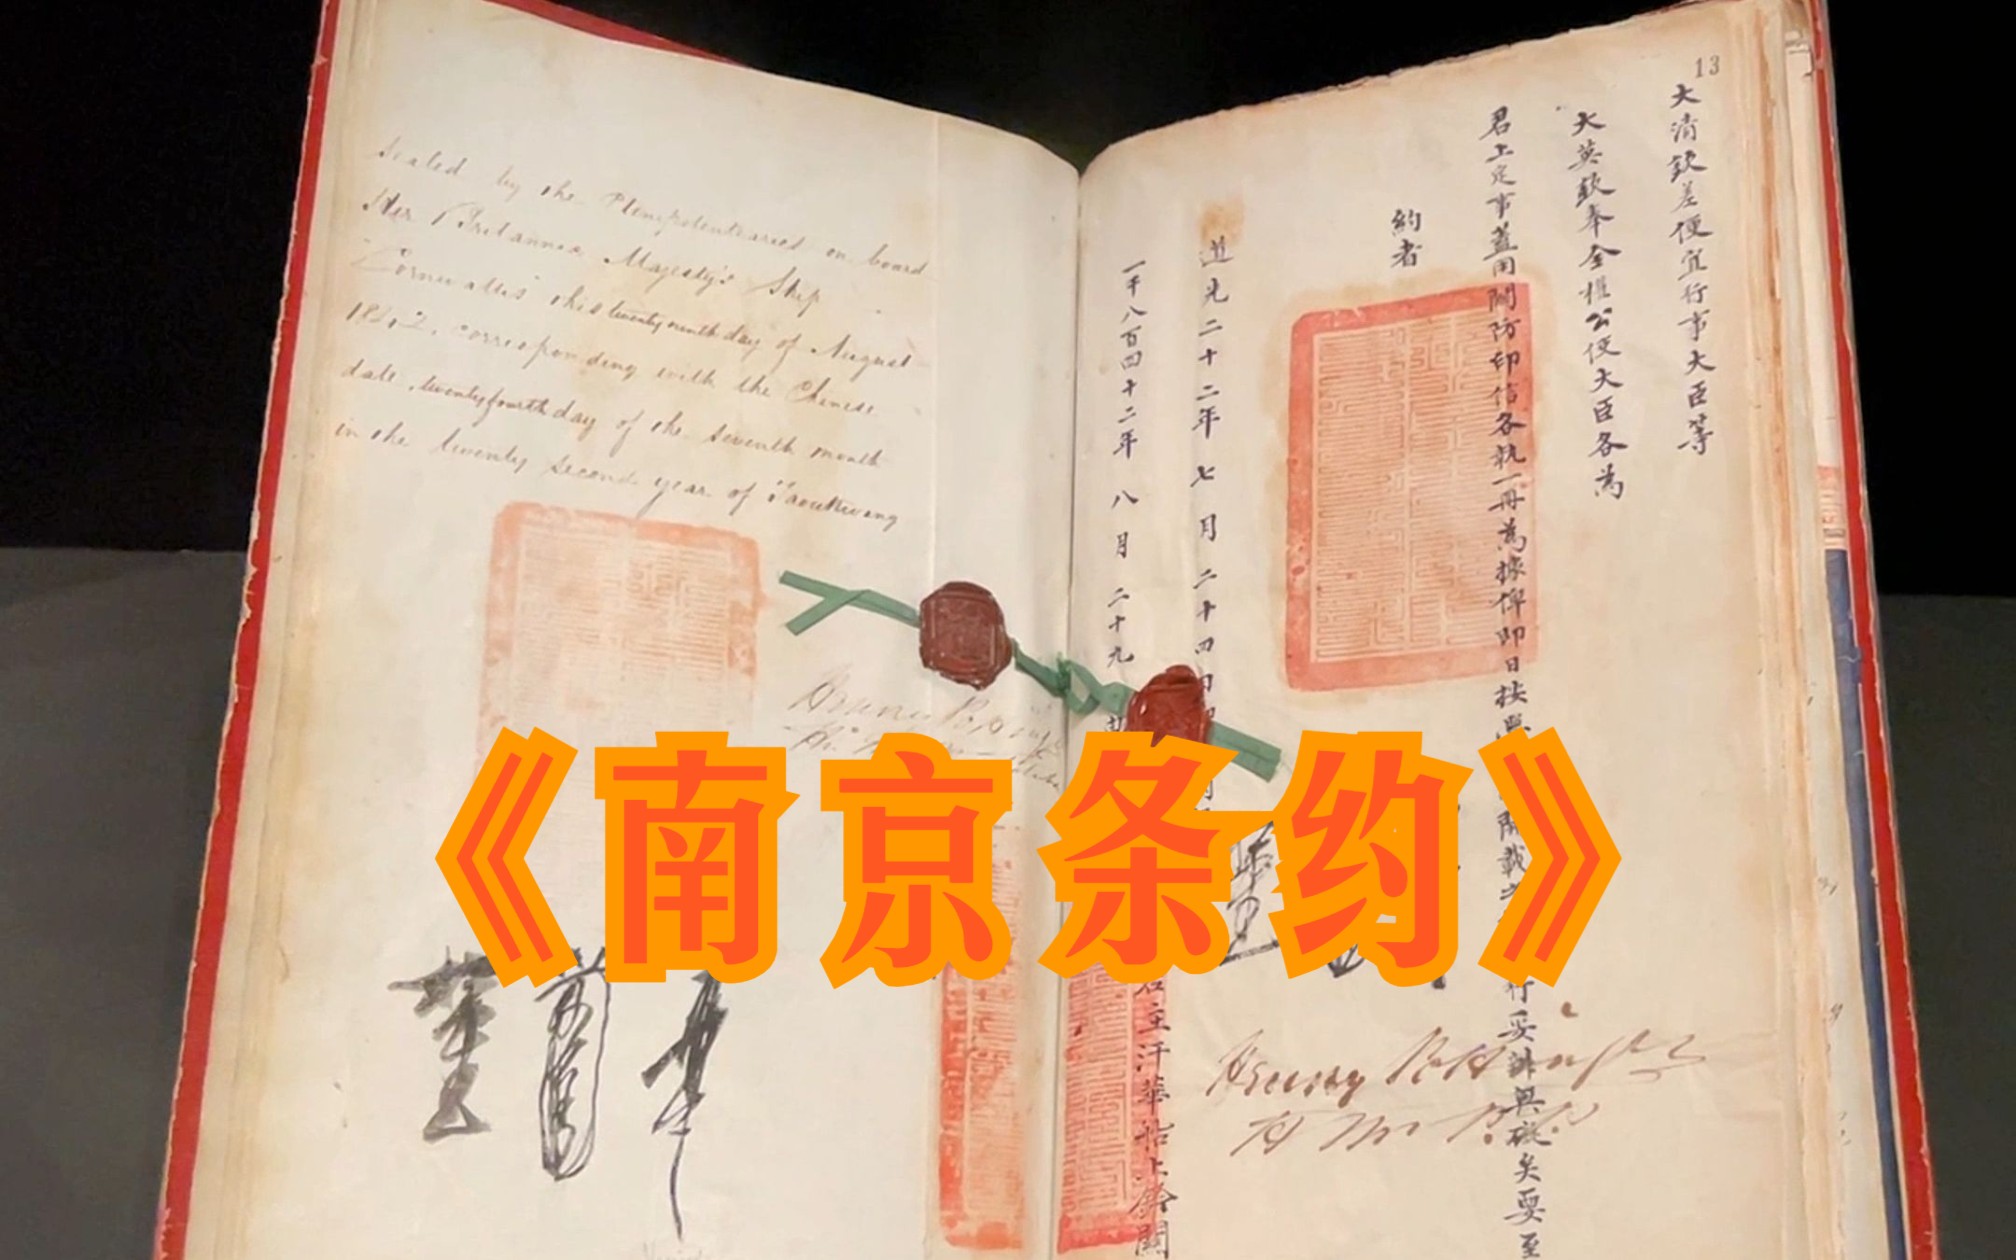 sealed by the Plenipotentiaries on board
Her Britannic Majesty's Ship
"Cornwallis" this twenty ninth day of August
1842, corresponding with the Chinese
date, twenty fourth day of the seventh month
in the twenty second year of Taoukwang
13
大清欽差便宜行事大臣等
大英欽奉全權公使大臣各為
君上定事蓋用關防印信各執一冊為據俾即日按 開載之 行妥辦無礙矣要至
約者
道光二十二年七月二十四日
一千八百四十二年八月二十九
君主汗華 上 關
Henry Pottinger
Henry Pottinger
《南京条约》